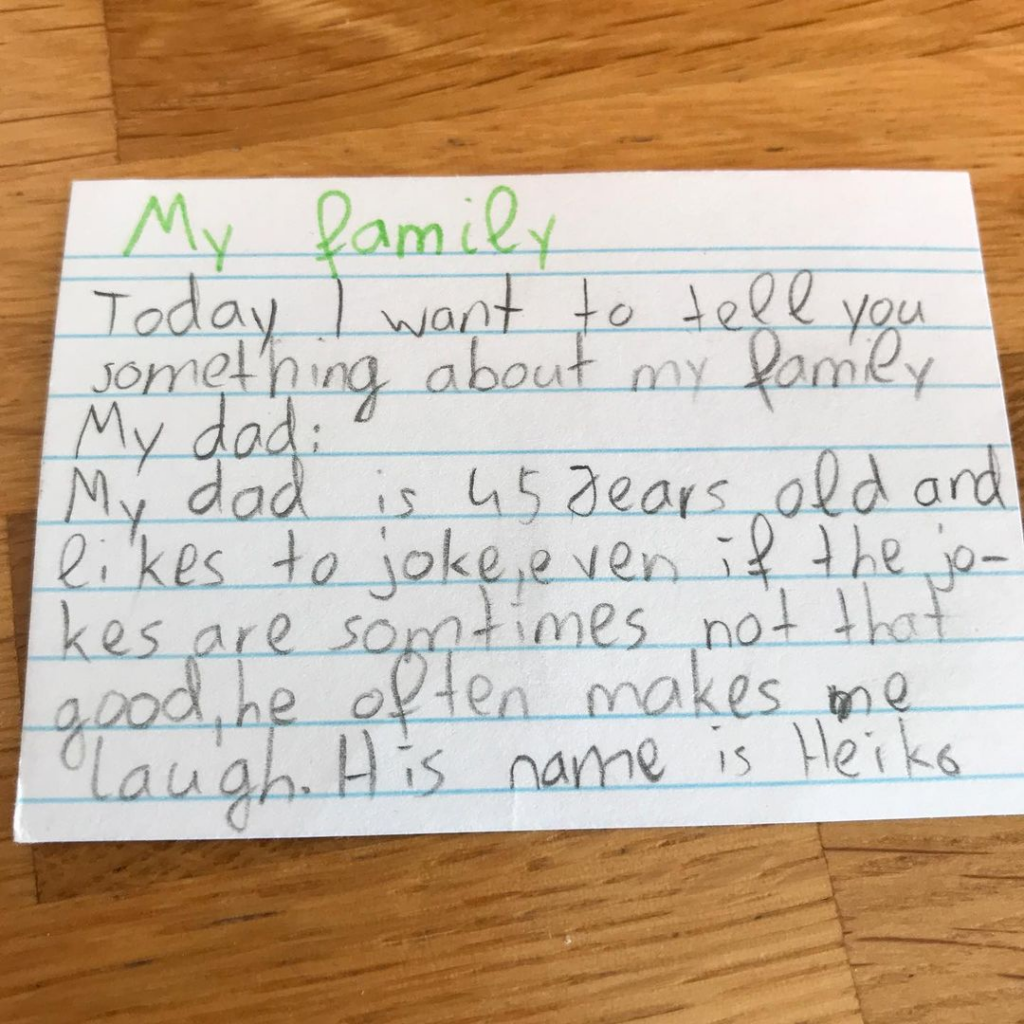 My family
Today I want to tell you
something about my family
My dad:
My dad is 45 years old and
likes to joke, even if the jo-
kes are somtimes not that
good, he often makes me
laugh. His name is Heiko